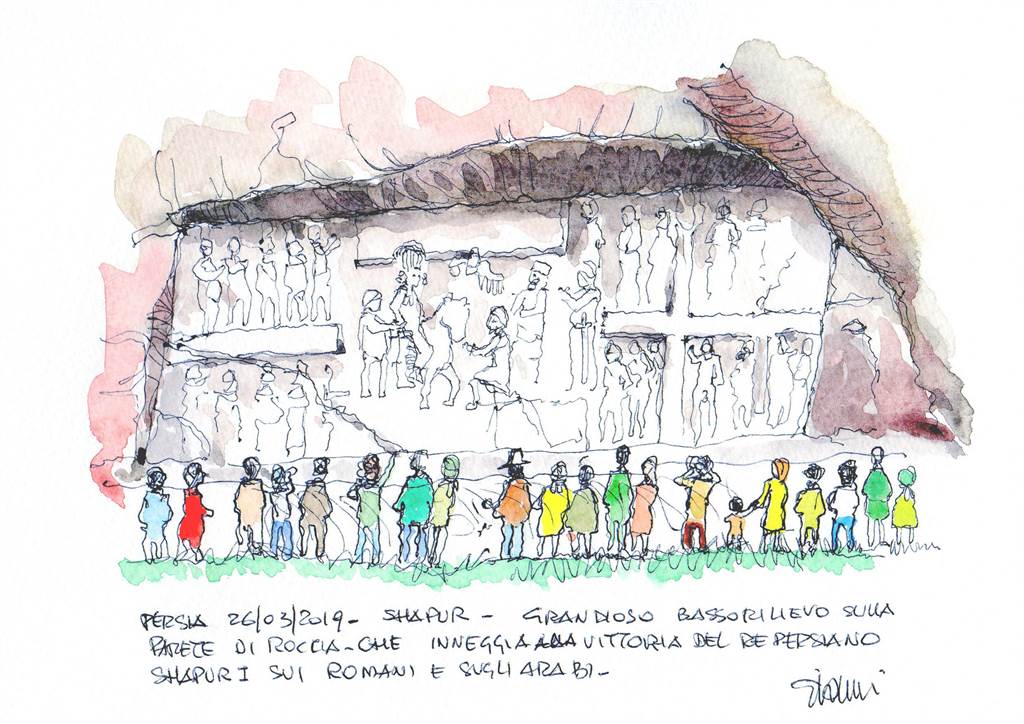 PERSIA 26/03/2019 - SHAPUR - GRANDIOSO BASSORILIEVO SULLA
PARETE DI ROCCIA - CHE INNEGGIA ALLA VITTORIA DEL RE PERSIANO
SHAPUR I SUI ROMANI E SUGLI ARABI -